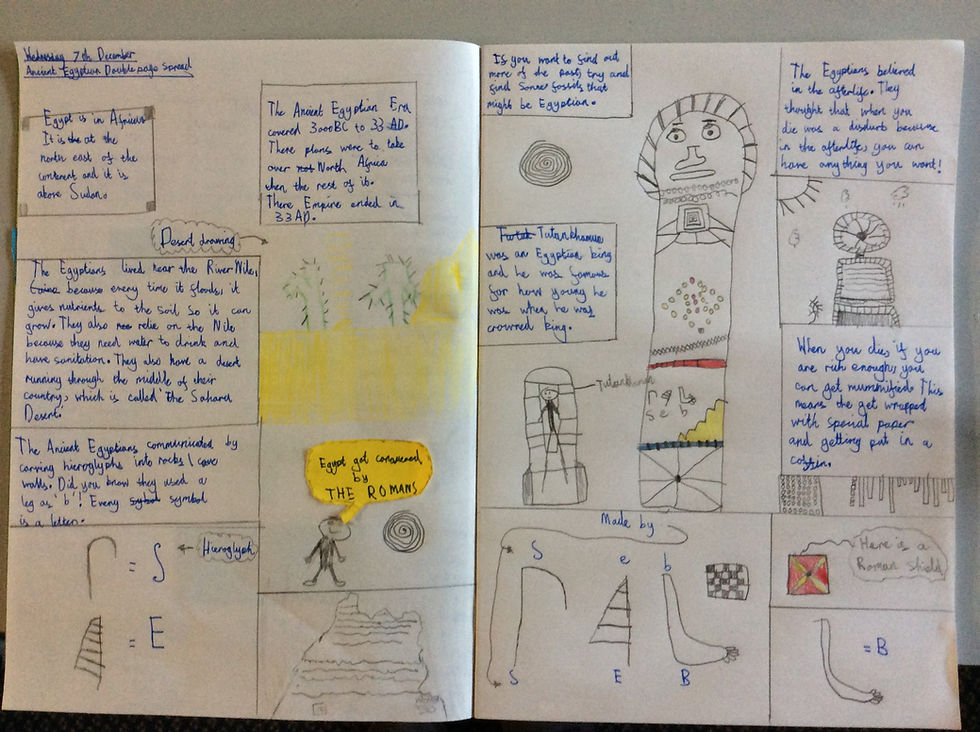 Wednesday 7th December
Ancient Egyptian Double page spread
Egypt is in
It is at the
north east of the
continent and it is
above Sudan.
The Ancient Egyptian Era
covered 3000BC to 33 AD.
There plans were to take
over North Africa
then the rest of it.
There Empire ended in
33 AD.
Desert drawing
The Egyptians lived near the River Nile,
because every time it floods, it
gives nutrients to the soil so it can
grow. They also relie on the Nile
because they need water to drink and
have sanitation. They also have a desert
running through the middle of their
country, which is called 'the Sahara
Desert.'
The Ancient Egyptians communicated by
carving hieroglyphs into rocks / cave
walls. Did you know they used a
leg as 'b'! Every symbol
is a letter.
Egypt got
by
THE ROMANS
Hieroglyph
= S
= E
If you want to find out
more of the past, try and
find some fossils that
might be Egyptian.
Tutankhamun
was an Egyptian king
and he was famous
for how young he
was when he was
crowned king.
Tutankhamun
s e b
Made by
S e b
S E B
The Egyptians believed
in the afterlife. They
thought that when you
die was a because
in the afterlife, you can
have anything you want!
When you die, if you
are rich enough, you
can get mummified. This
means the get wrapped
with special paper
and getting put in a
coffin.
Here is a
Roman shield
= B